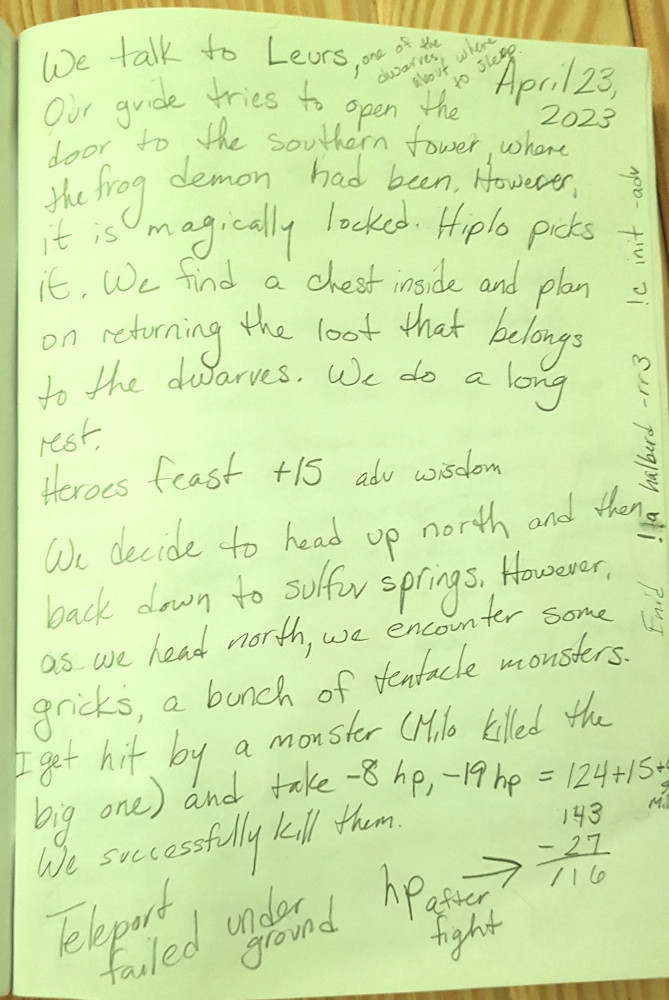 We talk to Leurs, one of the
dwarves, where
about to sleep.
April 23,
2023
Our guide tries to open the
door to the southern tower, where
the frog demon had been. However,
it is magically locked. Hiplo picks
it. We find a chest inside and plan
on returning the loot that belongs
to the dwarves. We do a long
rest.
Heroes feast +15 adv wisdom
We decide to head up north and then
back down to sulfur springs. However,
as we head north, we encounter some
gricks, a bunch of tentacle monsters.
I get hit by a monster (Milo killed the
big one) and take -8 hp, -19 hp = 124+15+
We successfully kill them.
143
- 27
116
hp after
fight
Teleport
failed under
ground
Enid !!a halberd -rr3 !c init -adv